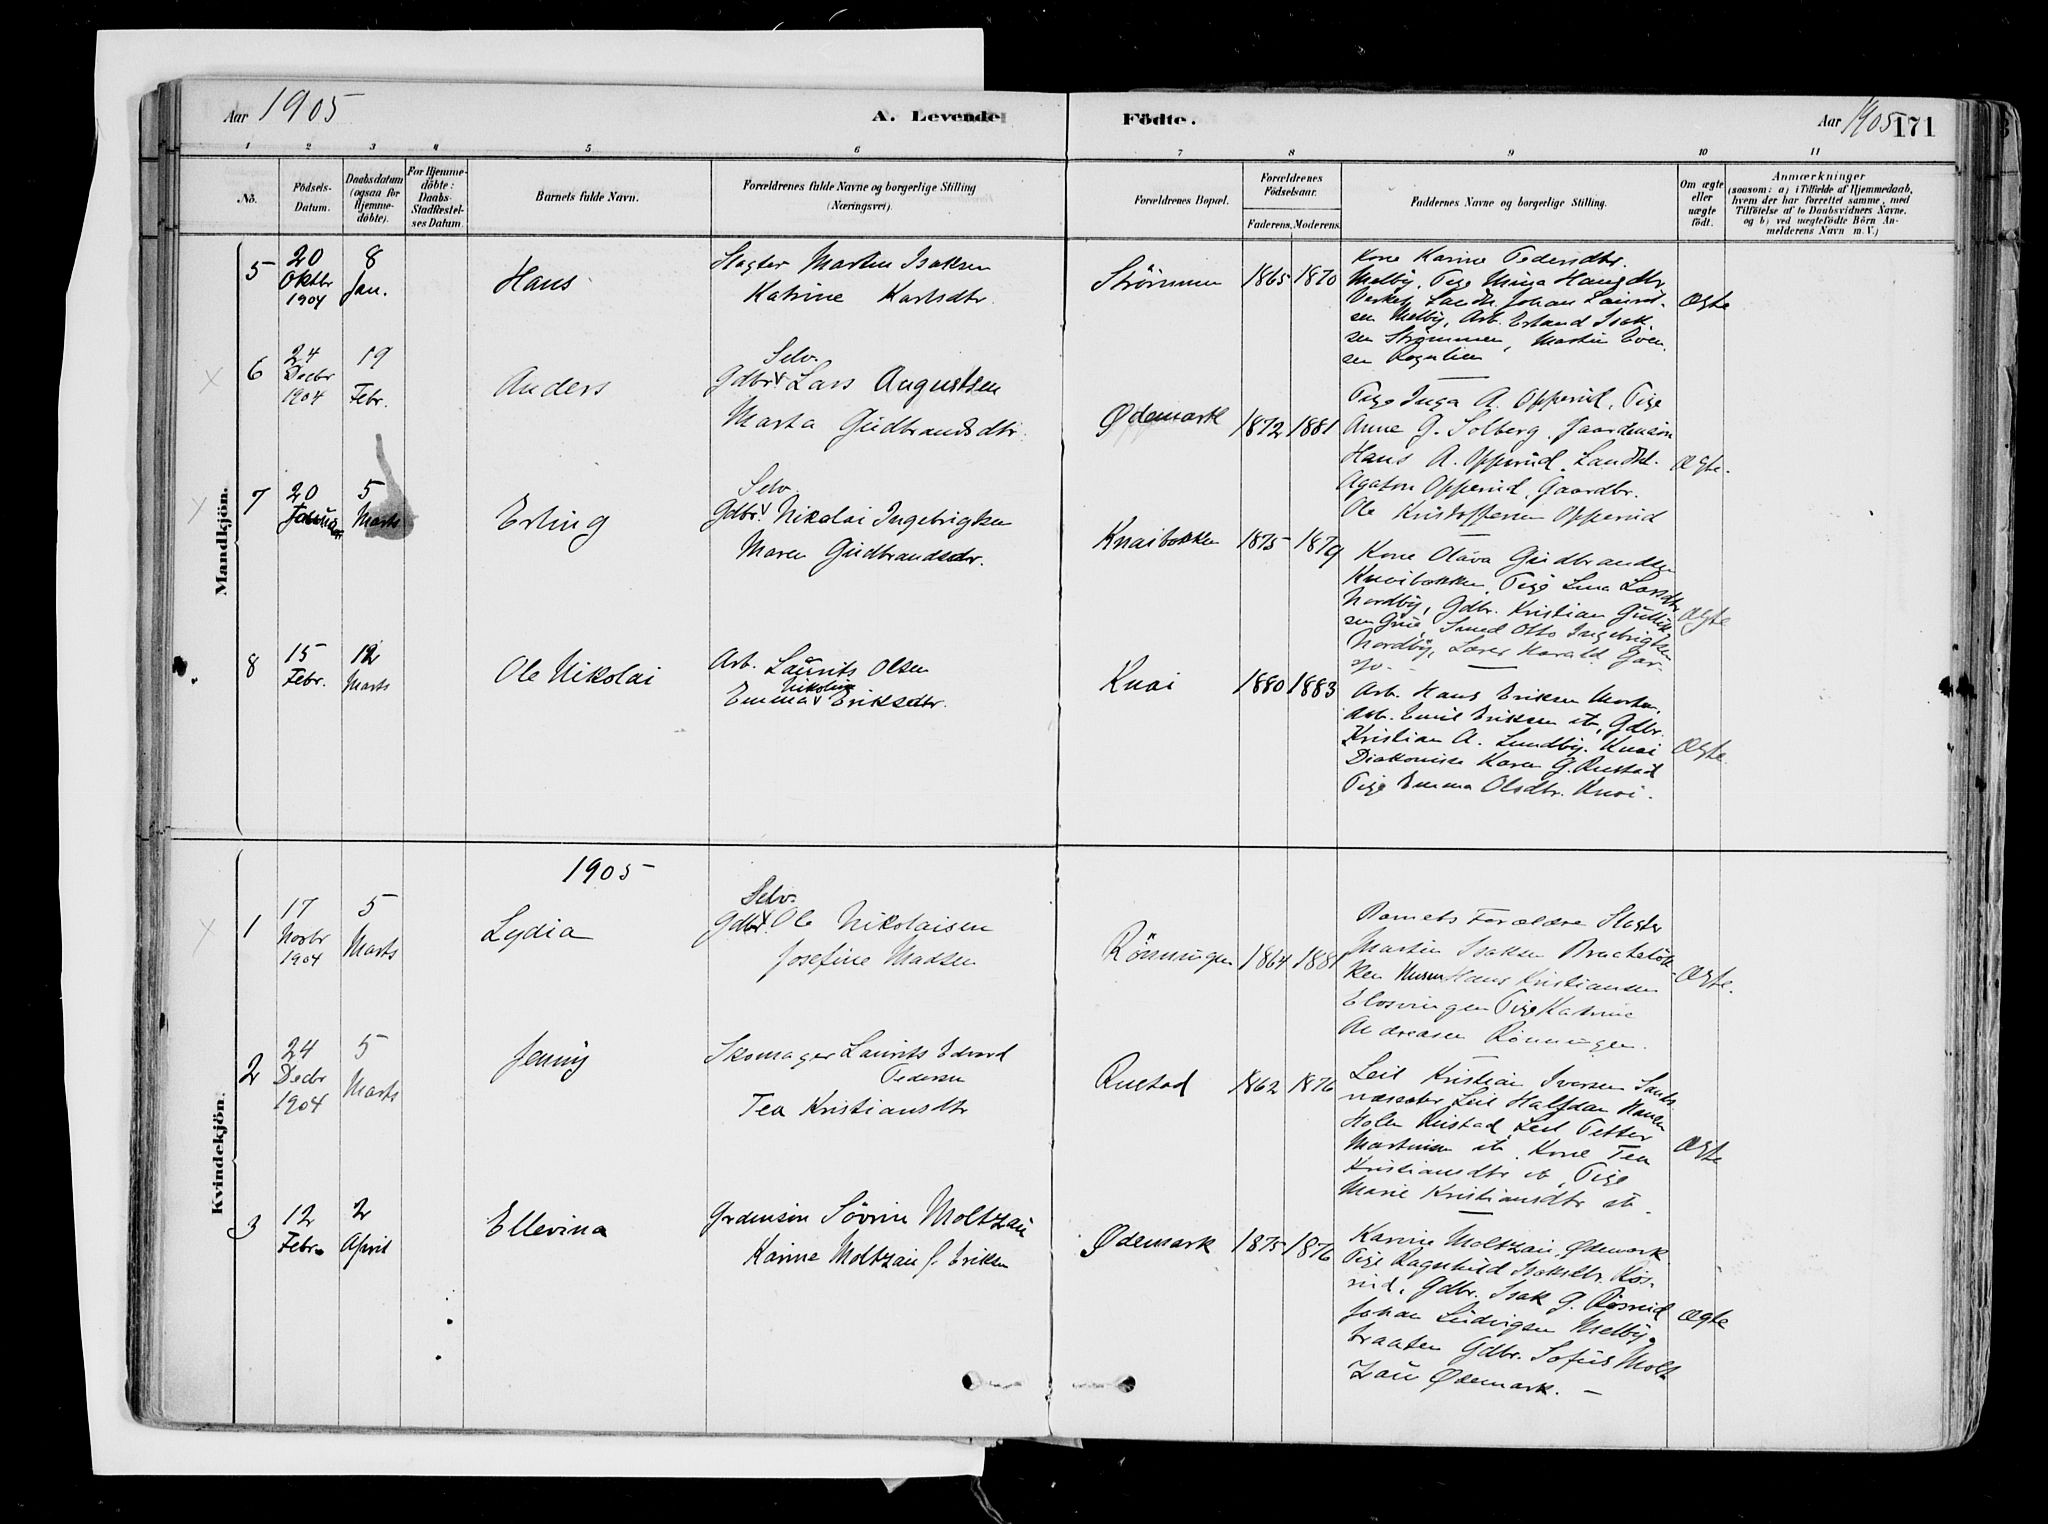 Aar 1905
A. Levende Födte.
Aar 1905 171
1 2 3 4 5 6 7 8 9 10 11
No.
Födsels-
Datum.
Daabsdatum
(ogsaa for
Hjemme-
döbte).
For Hjemme-
döbte:
Daabs-
Stadfæstel-
ses Datum.
Barnets fulde Navn.
Forældrenes fulde Navne og borgerlige Stilling
(Næringsvei).
Forældrenes Bopæl.
Forældrenes
Födselsaar.
Faderens. Moderens.
Faddernes Navne og borgerlige Stilling.
Om ægte
eller
uægte
födt.
Anmærkninger
(saasom: a) i Tilfælde af Hjemmedaab,
hvem der har forrettet samme, med
Tilföielse af to Daabsvidners Navne,
og b) ved uægtefödte Börn An-
melderens Navn m. V.)
Mandkjön.
5
20
Oktbr
1904
8
Jan.
Hans
Slagter Martin Isaksen
Katrine Karlsdtr.
Strömmen
1865 1870
Kone Karine Pedersdtr.
Melby, Pige Mina Hansdtr
Landh. Johan Laurit-
sen Melby, Arb. Erland Isak-
sen Strömmen, Martin Even-
sen
Ægte
6
24
Decbr
1904
19
Febr.
Anders
Selv.
Gdbr. Lars Augustsen
Marta Gudbrandsdtr.
Ødemark
1872 1881
Pige Inga A. Opperud, Pige
Anne G. Solberg, Gaardmsön
Hans A. Opperud, Landhl.
Agaton Opperud, Gaardbr.
Ole Kristoffersen Opperud
Ægte.
7
20
Januar
5
Marts
Erling
Selv.
Gdbr. Nikolai Ingebrigtsen
Maren Gudbrandsdtr.
Knaibakken
1875 1879
Kone Olava Gudbrandsen
Knaibakken, Pige Lina Larsdtr
Nordby, Gdbr. Kristian Gullik-
sen Smed Otto Ingebrigtsen
Nordby, Lærer Harald Gar-
Ægte
8
15
Febr.
12
Marts
Ole Nikolai
Arb. Laurits Olsen
Nikoline
Emma Eriksdtr.
Knai
1880 1883
Arb. Hans Eriksen
Arb. Emil Eriksen it., Gdbr.
Kristian A. Lundby. Knai
Diakonisse Karen G. Rustad
Pige Emma Olsdtr. Knai.
Ægte
Kvindekjön.
1905
1
17
Novbr
1904
5
Marts
Lydia
Selv.
Gdbr. Ole Nikolaisen
Josefine Madsen
Rönningen
1864 1881
Barnets Forældre Slagter
Martin Isaksen
Hans Kristiansen
Elosvingen Pige Katrine
Andreasen Rönningen.
Ægte.
2
24
Decbr
1904
5
Marts
Jenny
Skomager Laurits Edvard
Pedersen
Tea Kristiansdtr
Rustad
1862 1876
Leil Kristian Iversen
Leil Halfdan Hansen
Holen Rustad, Leil Petter
Martinsen it., Kone Tea
Kristiansdtr it, Pige
Marie Kristiansdtr it.
Ægte
3
12
Febr.
2
April
Ellevina
Grdmsön Sövrin Moltzau
Karine Moltzau f. Eriksen
Ødemark
1875 1876
Karine Moltzau, Ødemark
Pige Ragnhild Isaksdtr. Rös-
rud, Gdbr. Isak G. Rösrud
Johan Ludvigsen Melby-
braaten Gdbr. Sofus Molt
zau Ødemark.
Ægte